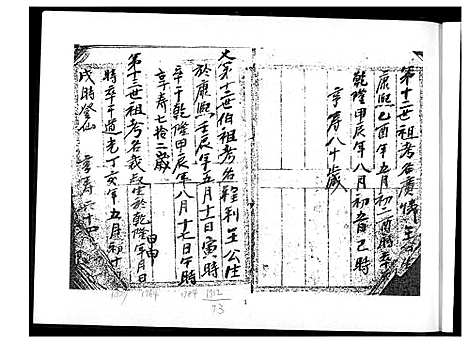 第十二世祖考名廣情生於
康熙乙酉年五月初二酉時卒于
乾隆甲辰年八月初五日己時
享壽八十歲
又第十一世伯祖考名程利生公生
於康熙壬辰年五月十一日寅時
卒于乾隆甲辰年八月十七日午時
享壽七拾二歲
第十三世祖考名我生於乾隆甲申年月日
時卒于道光丁亥年五月初十
戌時登仙 享壽六十四
1764
1784
1712
73
1